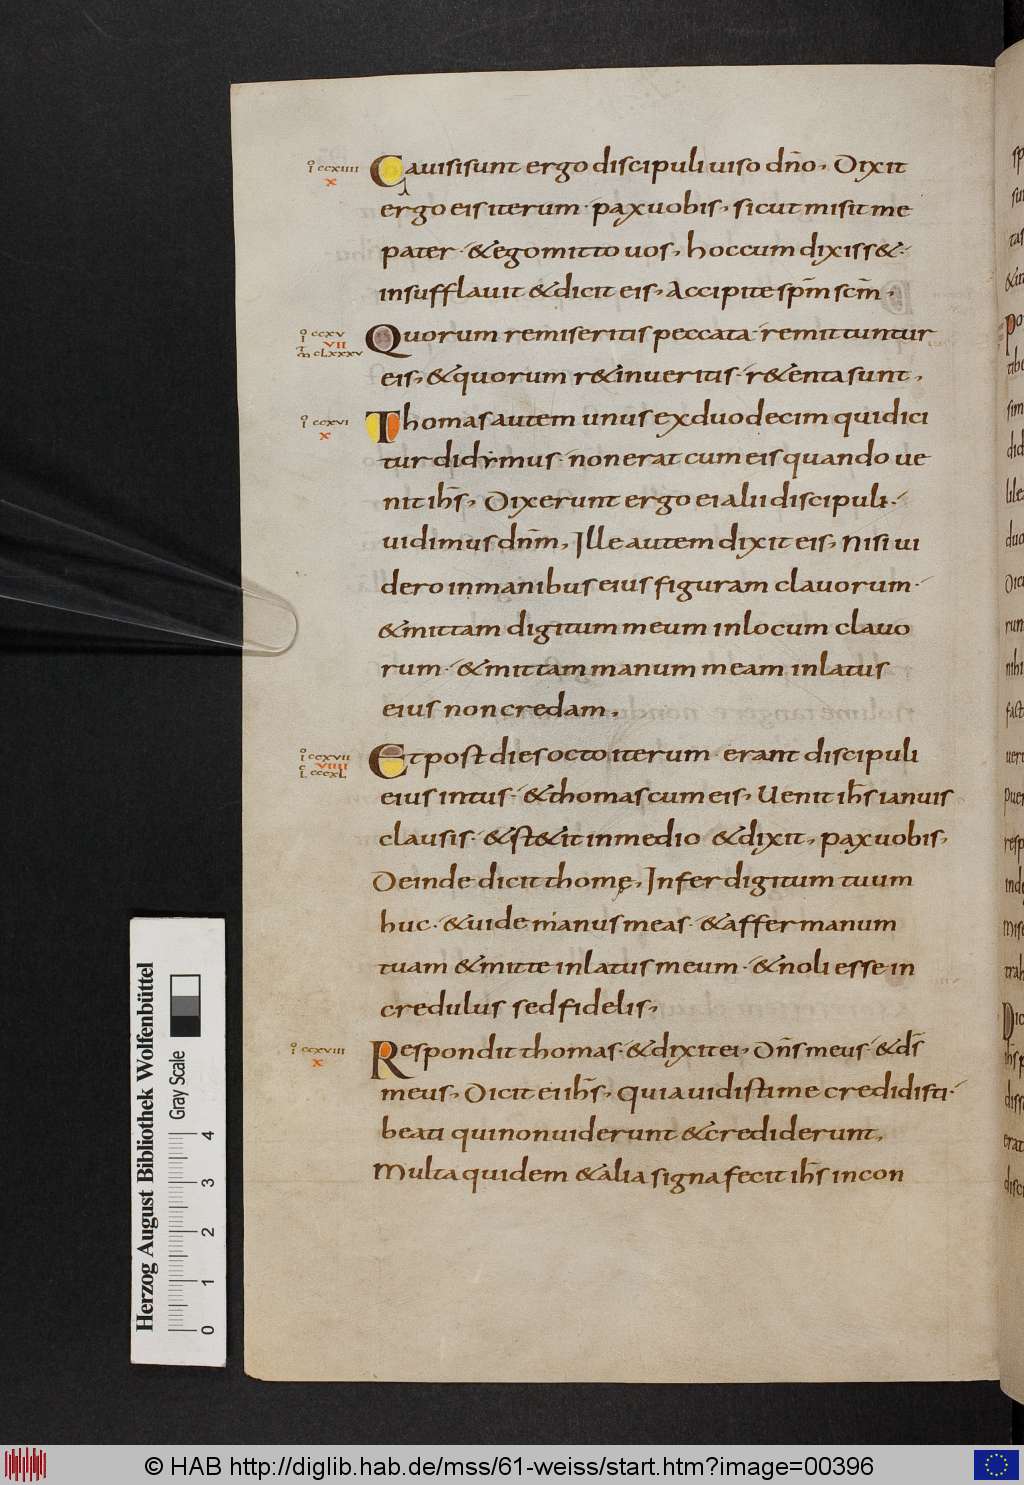 Gauisi sunt ergo discipuli uiso dn̄o, Dixit
ergo eis iterum · pax uobis, sicut misit me
pater · & ego mitto uos, hoc cum dixiss& ·
insufflauit & dicit eis, Accipite sp̄m sc̄m,
Quorum remiseritis peccata · remittuntur
eis, & quorum r&inueritis · r&enta sunt,
Thomas autem unus ex duodecim qui dici
tur didymus · non erat cum eis quando ue
nit ih̄s, Dixerunt ergo ei alii discipuli ·
uidimus dn̄m, Ille autem dixit eis, Nisi ui
dero in manibus eius figuram clauorum ·
& mittam digitum meum in locum clauo
rum · & mittam manum meam in latus
eius non credam,
Et post dies octo iterum · erant discipuli
eius intus · & thomas cum eis, Uenit ih̄s ianuis
clausis · & st&it in medio & dixit, pax uobis,
Deinde dicit thomę, Infer digitum tuum
huc · & uide manus meas · & affer manum
tuam & mitte in latus meum · & noli esse in
credulus sed fidelis,
Respondit thomas · & dixit ei, Dn̄s meus · & ds̄
meus, Dicit ei ih̄s, quia uidisti me credidisti ·
beati qui non uiderunt & crediderunt,
Multa quidem & alia signa fecit ih̄s in con
io ccxiiii
x
io ccxv
VII
m̄t cLxxxv
io ccxvi
x
io ccxvii
VIIII
L cccxL
io ccxviii
x
Herzog August Bibliothek Wolfenbüttel
Gray Scale
0 1 2 3 4
© HAB http://diglib.hab.de/mss/61-weiss/start.htm?image=00396